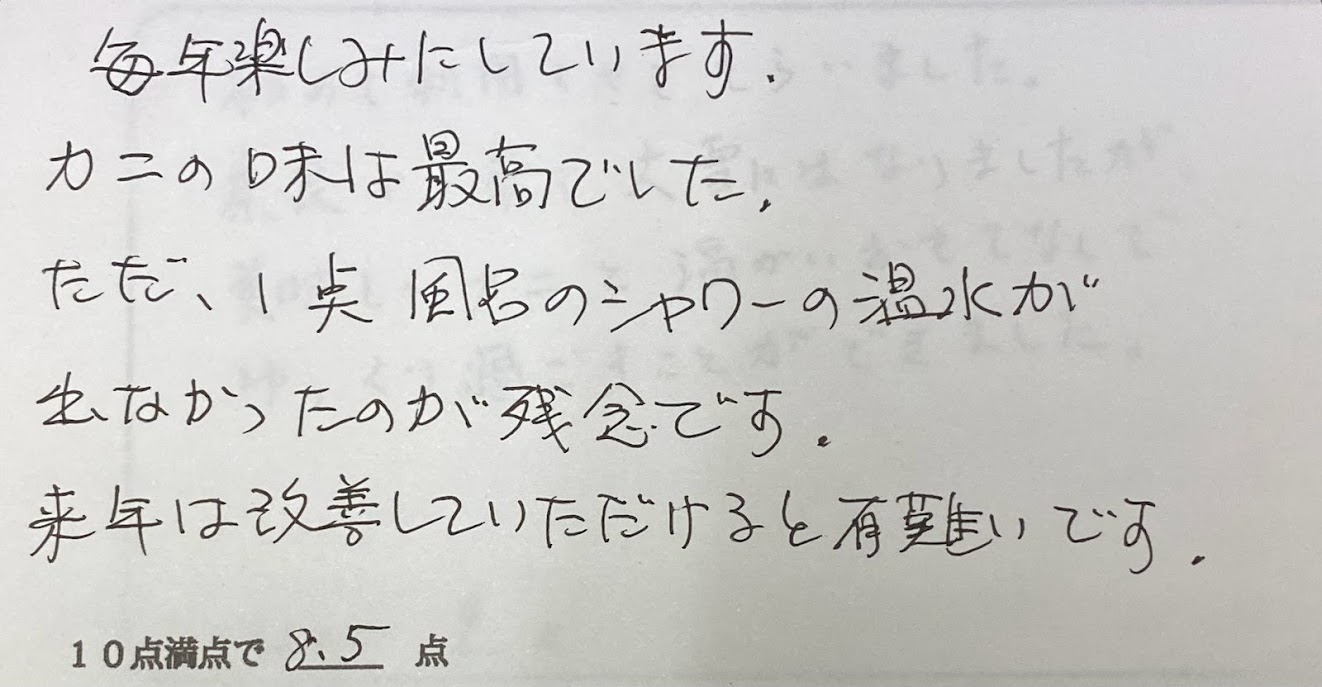 毎年楽しみにしています.
カニの味は最高でした.
ただ、1点 風呂のシャワーの温水が
出なかったのが残念です.
来年は改善していただけると有難いです.
10点満点で 8.5 点